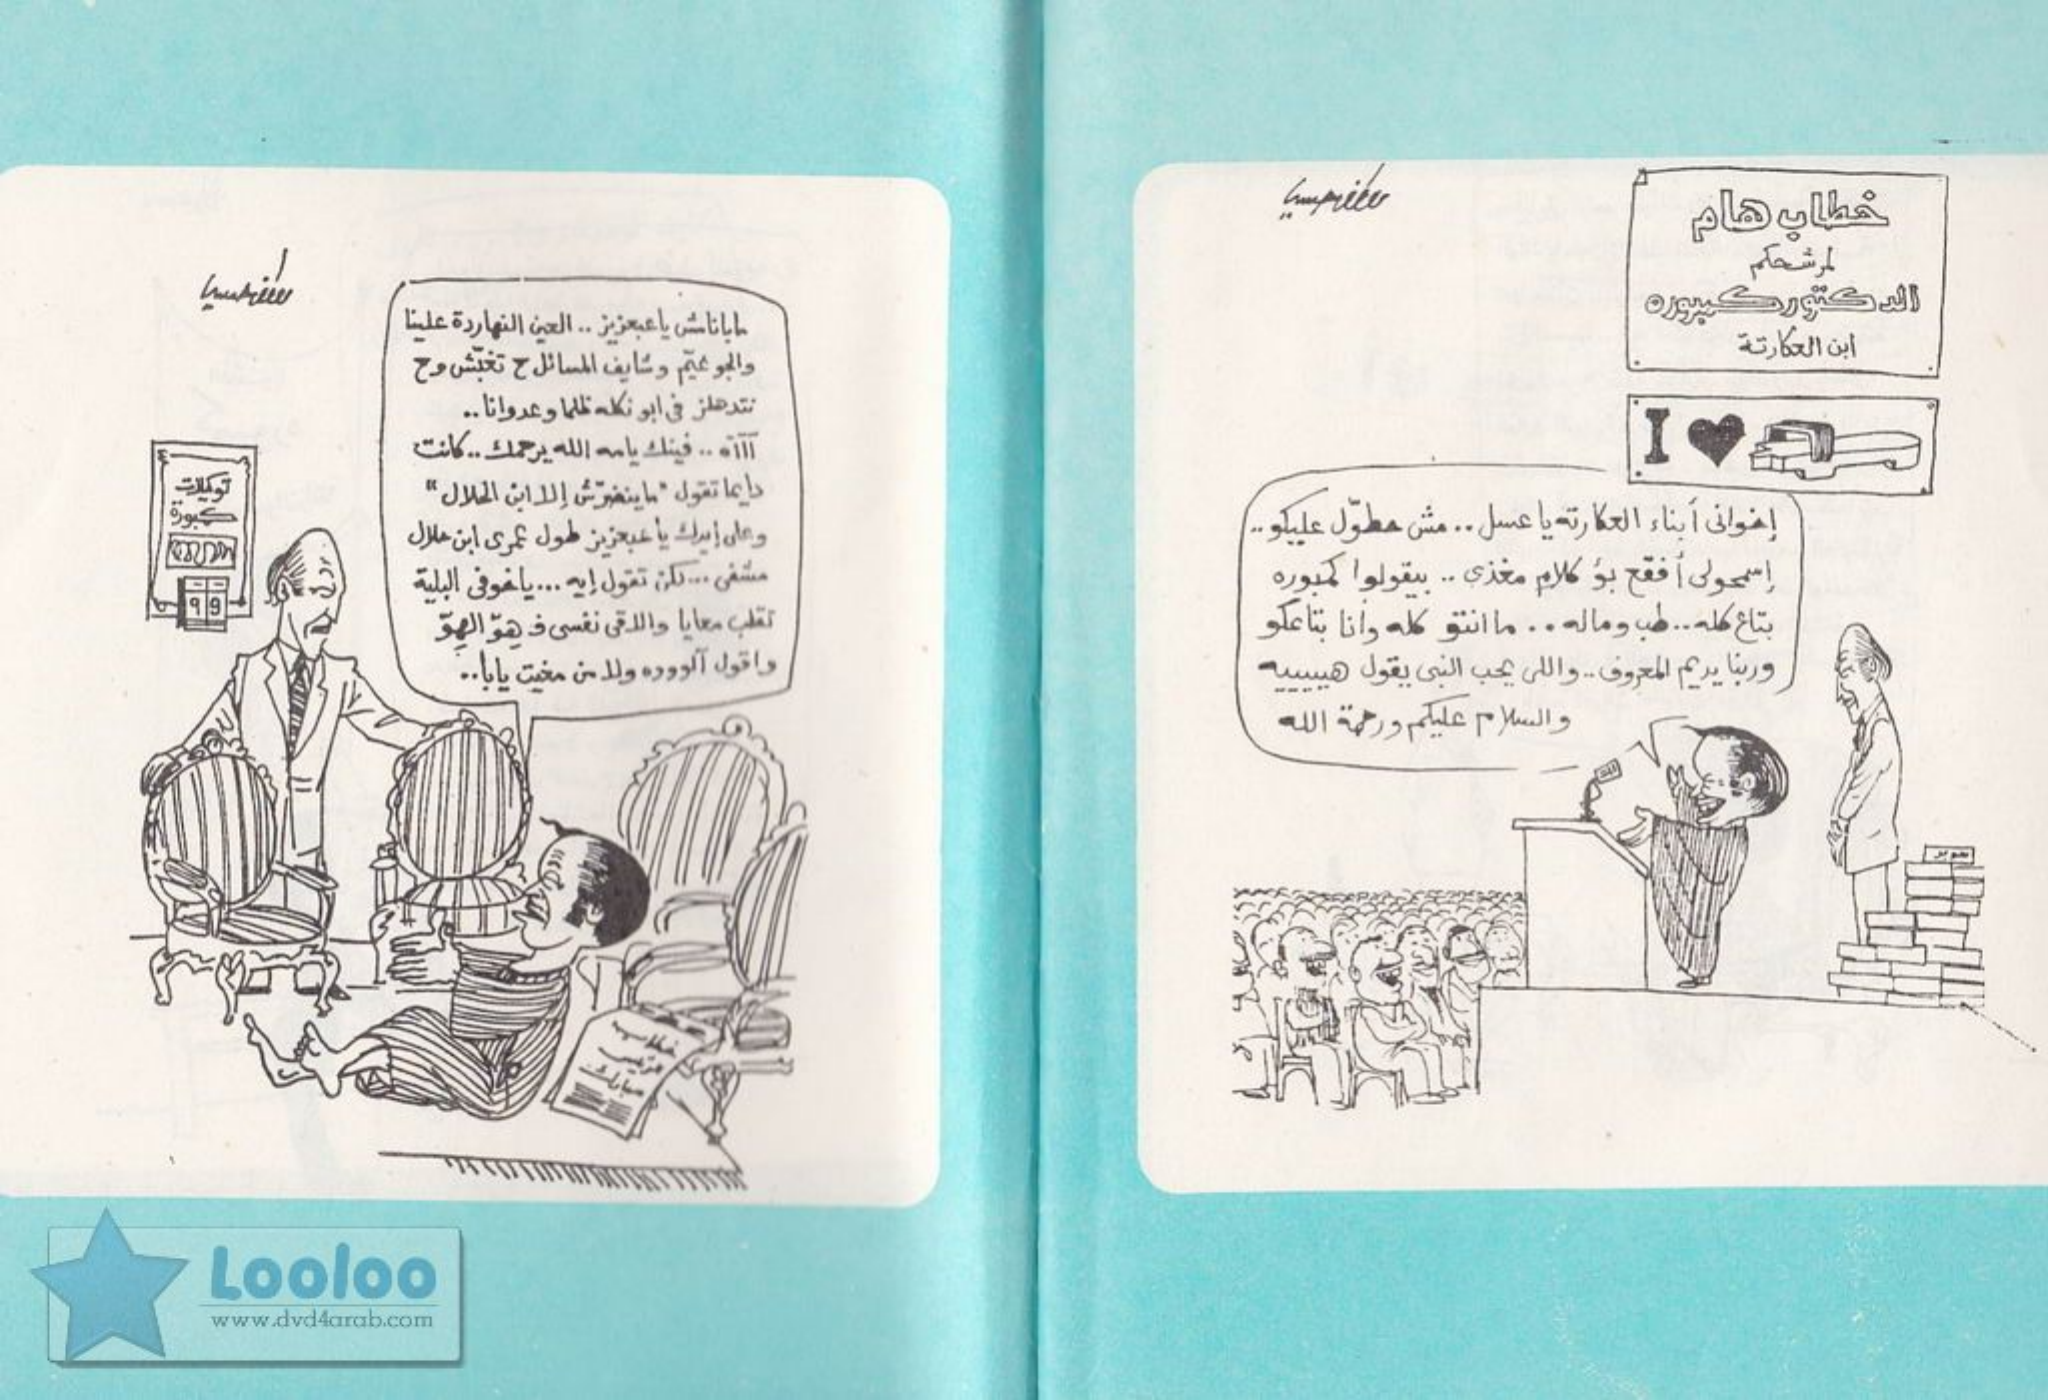 خطاب هام
لمرشحكم
الدكتور كمبوره
ابن العكارتة
I
إخواني أبناء العكارته يا عسل .. مش مطوّل عليكو ..
إسمحولى أفقع بؤ كلام مغذى .. بيقولوا كمبوره
بتاع كله .. طب وماله .. ما انتو كله وانا بتاعكو
وربنا يديم المعروف .. واللى يحب النبى يقول هيييييه
والسلام عليكم ورحمة الله
مابانا مش يا عبعزيز .. العين النهاردة علينا
والجو غيّم وشايف المسائل ح تغبّش وح
نتدهلز فى ابو نكله ظلما وعدوانا ..
آآآه .. فينك يامه الله يرحمك .. كانت
دايما تقول "ما ينضرّش إلا ابن الحلال"
وعلى إيدك يا عبعزيز طول عمرى ابن حلال
مشفى ... لكن تقول إيه ... يا خوفى البلية
تقلب معايا والاقى نفسى فـ هوّ الهوّ
واقول آلووده ولا من مغيت يابا ..
توكيلات
كمبورة
٩ ٩
خطاب
الرئيس
مبارك
Looloo
www.dvd4arab.com